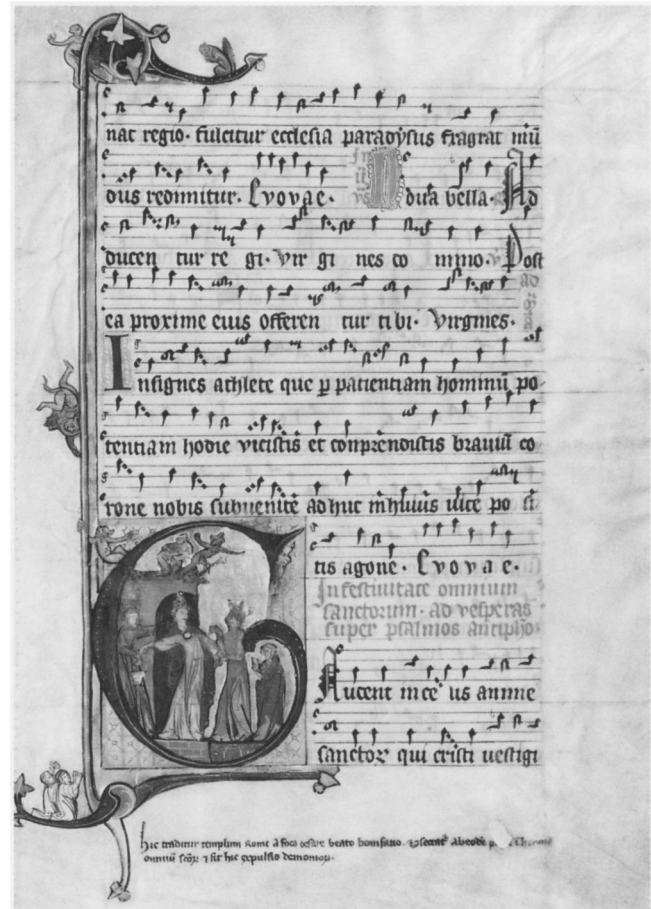 nat regio. fulcitur ecclesia paradysus fragrat mū
dus redimitur. Evovae. dura bella. Ad
ducen tur re gi. vir gi nes do mino. Post
ea proxime eius offeren tur tibi. Virgines.
Insignes athlete que p patientiam hominū po
tentiam hodie vicistis et conprendistis braviū co
rone nobis subvenite ad huc in po si
tis agone. Evovae.
In festivitate omnium
sanctorum. ad vesperas
super psalmos antipho
Audent in ce us anime
sanctor qui cristi vestigi
hic traditur templum rome a foca cesare beato bonifatio.
omniū scōr et fit hic expulsio demonior.